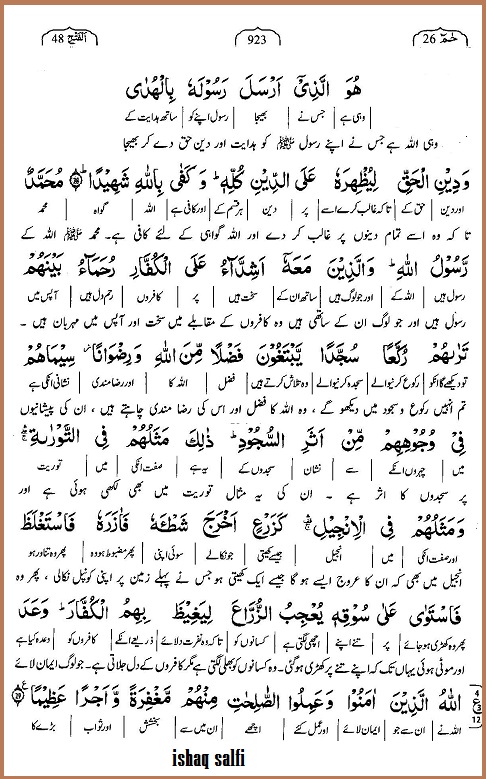 حٰمٓ 26
923
الفتح 48
هُوَ الَّذِیْۤ اَرْسَلَ رَسُوْلَهٗ بِالْهُدٰی
وہی ہے جس نے بھیجا رسول اپنے کو ساتھ ہدایت کے
وہی اللہ ہے جس نے اپنے رسول ﷺ کو ہدایت اور دین حق دے کر بھیجا
وَدِیْنِ الْحَقِّ لِیُظْهِرَهٗ عَلَی الدِّیْنِ كُلِّهٖ ؕ وَ كَفٰی بِاللّٰهِ شَهِیْدًا ﴿28﴾ مُحَمَّدٌ
اور دین حق کے تاکہ غالب کرے اسے پر دین ہر قسم کے اور کافی ہے اللہ گواہ محمد
تا کہ وہ اسے تمام دینوں پر غالب کر دے اور اللہ گواہی کے لئے کافی ہے۔ محمد ﷺ اللہ کے
رَّسُوْلُ اللّٰهِ ؕ وَالَّذِیْنَ مَعَهٗۤ اَشِدَّآءُ عَلَی الْكُفَّارِ رُحَمَآءُ بَیْنَهُمْ
رسول ہیں اللہ کے اور جو لوگ ہیں ساتھ ان کے سخت ہیں پر کافروں رحم دل ہیں آپس میں
رسول ہیں اور جو لوگ ان کے ساتھی ہیں وہ کافروں کے مقابلے میں سخت اور آپس میں مہربان ہیں۔
تَرٰىهُمْ رُكَّعًا سُجَّدًا یَّبْتَغُوْنَ فَضْلًا مِّنَ اللّٰهِ وَرِضْوَانًا سِیْمَاهُمْ
تو دیکھے گا انکو رکوع کرنیوالے سجدہ کرنیوالے وہ تلاش کرتے ہیں فضل اللہ کا اور رضا مندی نشانی انکی ہے
تم انہیں رکوع و سجود میں دیکھو گے، وہ اللہ کا فضل اور اس کی رضا مندی چاہتے ہیں، ان کی پیشانیوں
فِیْ وُجُوْهِهِمْ مِّنْ اَثَرِ السُّجُوْدِ ؕ ذٰلِكَ مَثَلُهُمْ فِی التَّوْرٰىةِ
میں چہروں انکے سے نشان سجدوں کے یہ ہے صفت انکی میں توریت
پر سجدوں کا اثر ہے۔ ان کی یہ مثال توریت میں بھی لکھی ہوئی ہے اور
وَمَثَلُهُمْ فِی الْاِنْجِیْلِ كَزَرْعٍ اَخْرَجَ شَطْـَٔهٗ فَاٰزَرَهٗ فَاسْتَغْلَظَ
اور صفت انکی میں انجیل جیسے کھیتی جو نکالے سوئی اپنی پھر مضبوط ہو وہ پھر وہ تناور ہو
انجیل میں بھی کہ ان کا عروج ایسے ہو گا جیسے ایک کھیتی ہو جس نے پہلے زمین پر اپنی کونپل نکالی، پھر وہ
فَاسْتَوٰی عَلٰی سُوْقِهٖ یُعْجِبُ الزُّرَّاعَ لِیَغِیْظَ بِهِمُ الْكُفَّارَ ؕ وَعَدَ
پھر وہ کھڑی ہو جائے پر تنے اپنے اچھی لگتی ہے کسانوں کو تاکہ وہ نفرت دلائے ذریعے انکے کافروں کو وعدہ کیا ہے
اور موٹی ہوئی یہاں تک کہ اپنے تنے پر کھڑی ہو گئی۔ وہ کسانوں کو بھلی لگتی ہے مگر کافروں کے دل جلاتی ہے۔ جو لوگ ایمان لائے
اللّٰهُ الَّذِیْنَ اٰمَنُوْا وَعَمِلُوا الصّٰلِحٰتِ مِنْهُمْ مَّغْفِرَةً وَّ اَجْرًا عَظِیْمًا ﴿29﴾
اللہ نے ان سے جو ایمان لائے اور عمل کئے اچھے ان میں سے بخشش اور ثواب بڑے کا
4
ع 3
12
ishaq salfi